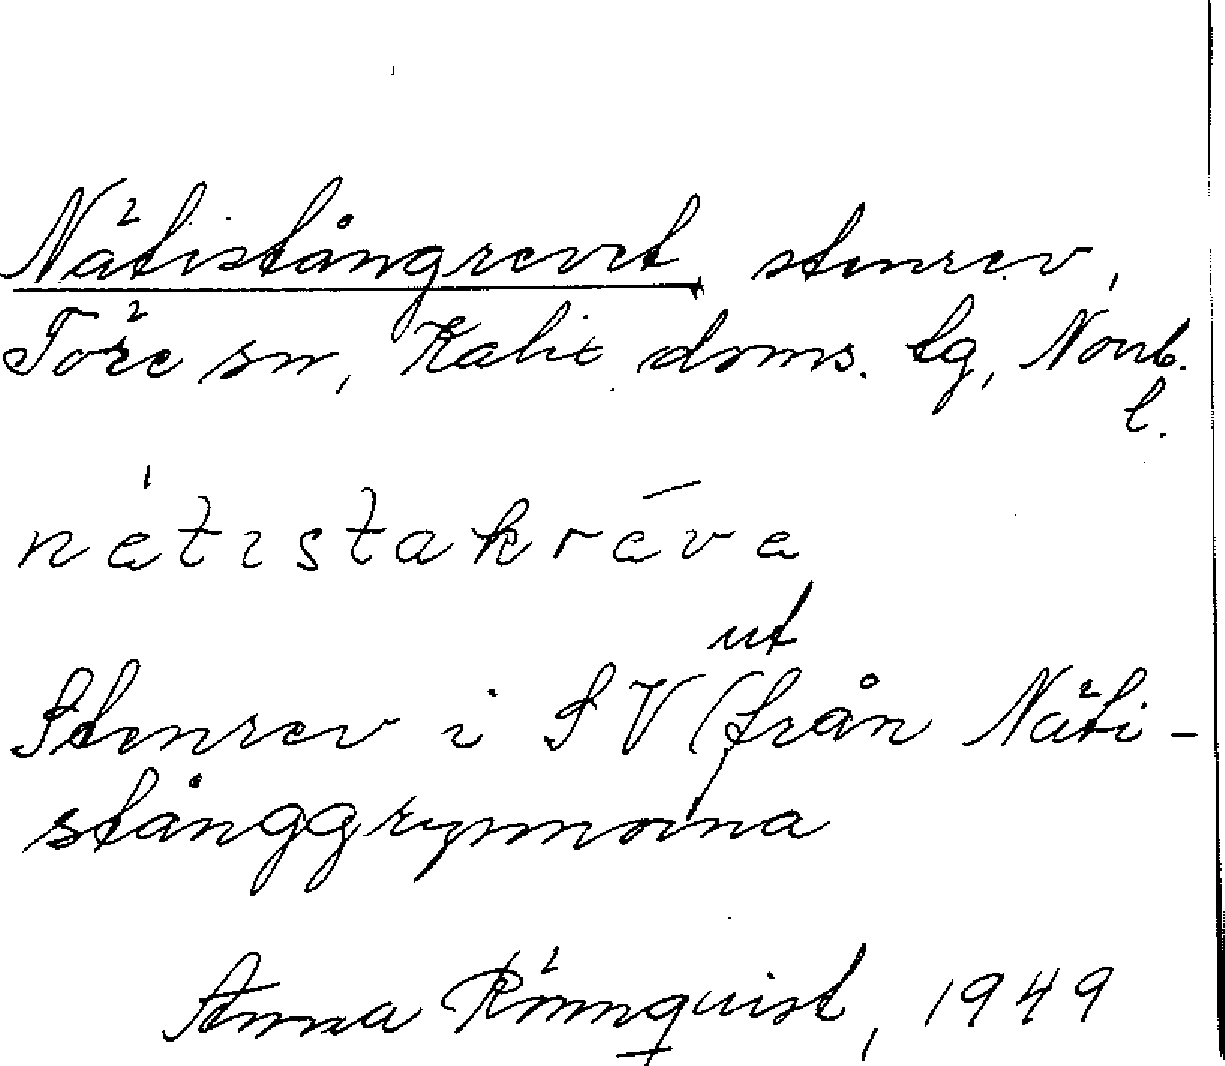 Nätistångrevet, stenrev,
Töre sn, Kalix doms. lg, Norrb.
l.
nátistakrāva
ut
Stenrev i SV från Näti-
stånggrynnorna
Anna Rönnquist, 1949